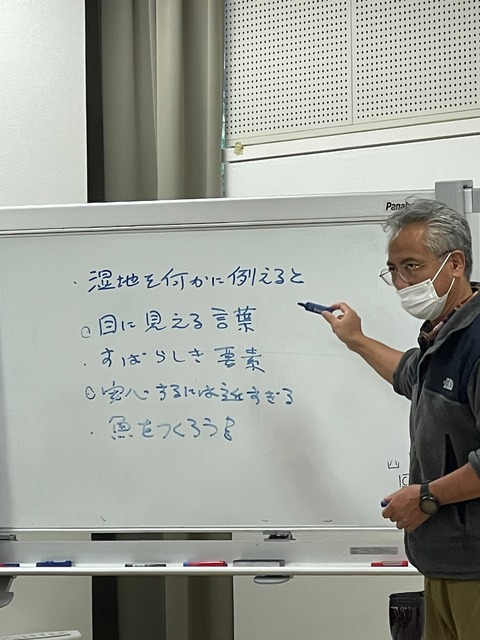 Panabo
・湿地を何かに例えると
○目に見える言葉
・すばらしき要素
○安心するには近すぎる
・魚をつくろう